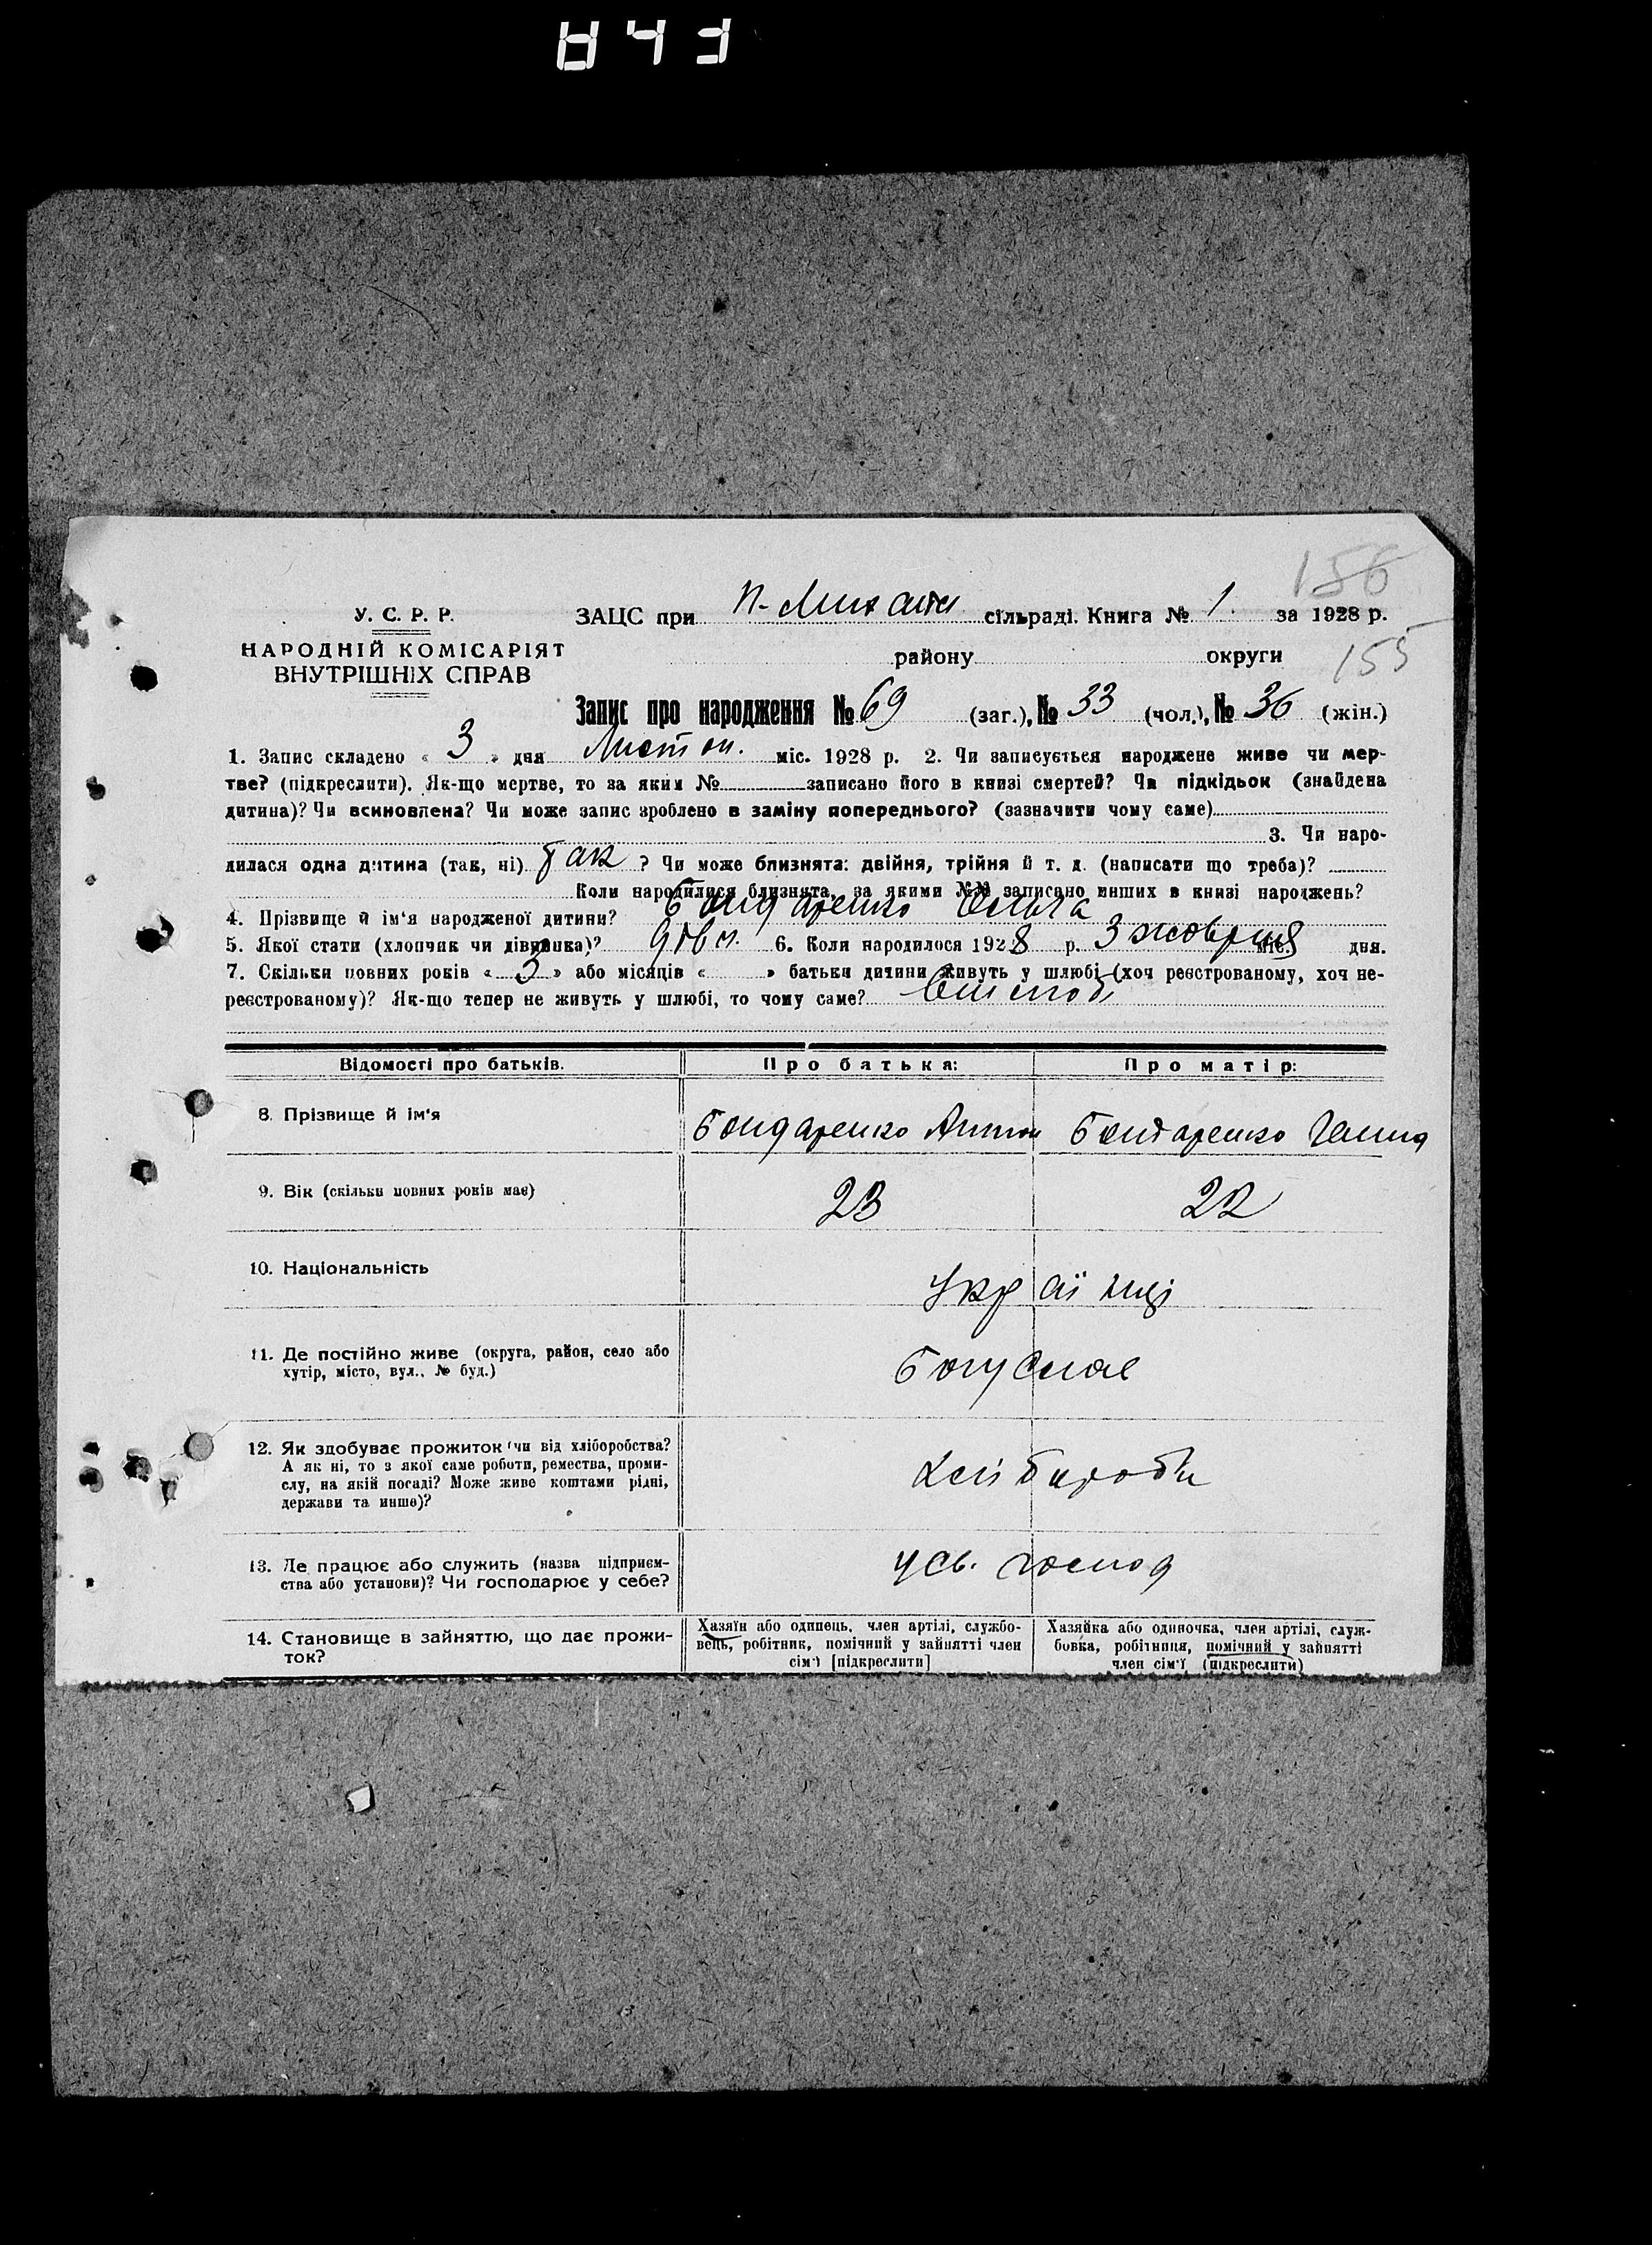 156
У. С. Р. Р. ЗАЦС при сільраді. Книга № 1. за 1928 р.
НАРОДНІЙ КОМІСАРІЯТ
ВНУТРІШНІХ СПРАВ
району округи 155
Запис про народження № 69 (заг.), № 33 (чол.), № 36 (жін.)
1. Запис складено « 3 » дня Листоп. міс. 1928 р. 2. Чи записується народжене живе чи мер-
тве? (підкреслити). Як-що мертве, то за яким № записано його в книзі смертей? Чи підкідьок (знайдена
дитина)? Чи всиновлена? Чи може запис зроблено в заміну попереднього? (зазначити чому саме)
3. Чи наро-
дилася одна дитина (так, ні) Так ? Чи може близнята: двійня, трійня й т. д. (написати що треба)?
Коли народилися близнята, за якими №№ записано инших в книзі народжень?
4. Прізвище й ім'я народженої дитини? Бондаренко Ольга
5. Якої стати (хлопчик чи дівчинка)? 6. Коли народилося 1928 р. 3 жовтня міс. дня.
7. Скільки повних років « 3 » або місяців « » батьки дитини живуть у шлюбі (хоч реєстрованому, хоч не-
реєстрованому)? Як-що тепер не живуть у шлюбі, то чому саме?
Відомості про батьків. Про батька: Про матір:
8. Прізвище й ім'я Бондаренко Антон Бондаренко Ганна
9. Вік (скільки повних років має) 23 22
10. Національність Українці
11. Де постійно живе (округа, район, село або
хутір, місто, вул., № буд.) Богуслав
12. Як здобуває прожиток (чи від хліборобства?
А як ні, то з якої саме роботи, ремества, проми-
слу, на якій посаді? Може живе коштами рідні,
держави та инше)? Хлібороби
13. Де працює або служить (назва підприєм-
ства або установи)? Чи господарює у себе? у св. господ
14. Становище в зайняттю, що дає прожи-
ток?
Хазяїн або одинець, член артілі, службо-
вець, робітник, помічний у зайнятті член
сім'ї [підкреслити]
Хазяйка або одиночка, член артілі, служ-
бовка, робітниця, помічний у зайнятті
член сім'ї (підкреслити)